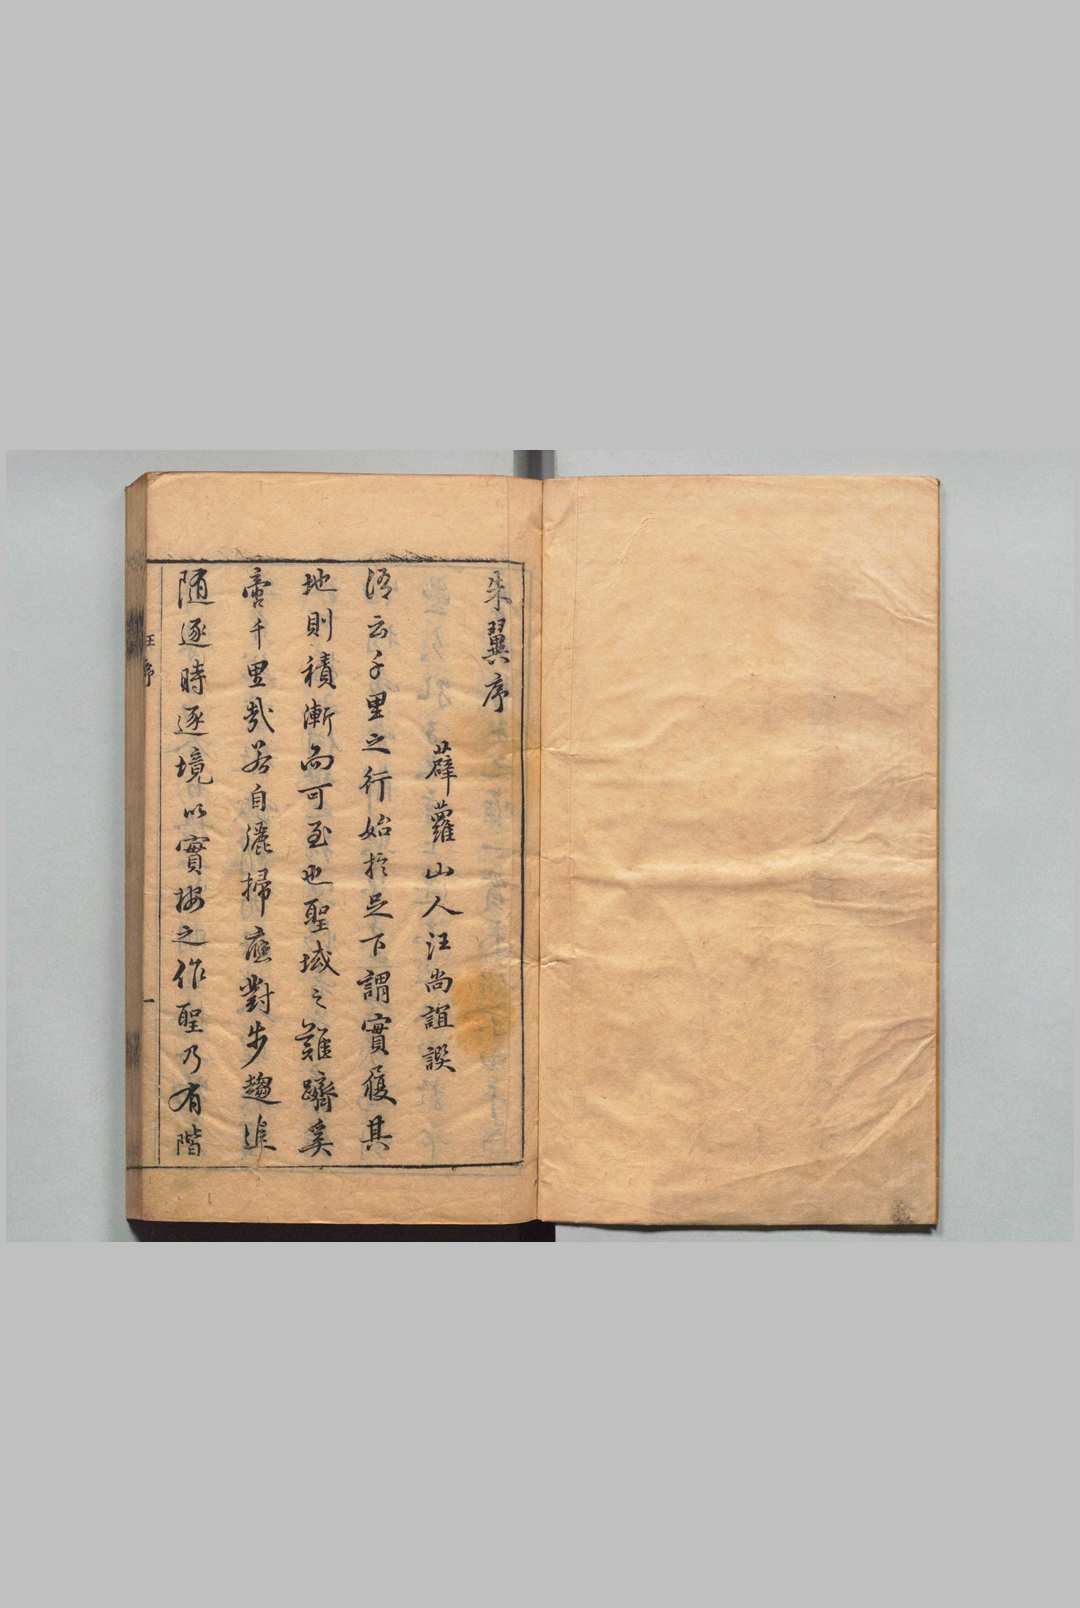 朱翼序
薜蘿山人汪尚誼譔
語云千里之行始於足下謂實履其
地則積漸而可至也聖域之難躋奚
啻千里哉若自灑掃應對步趨進
隨逐時逐境以實按之作聖乃有階
汪序
一